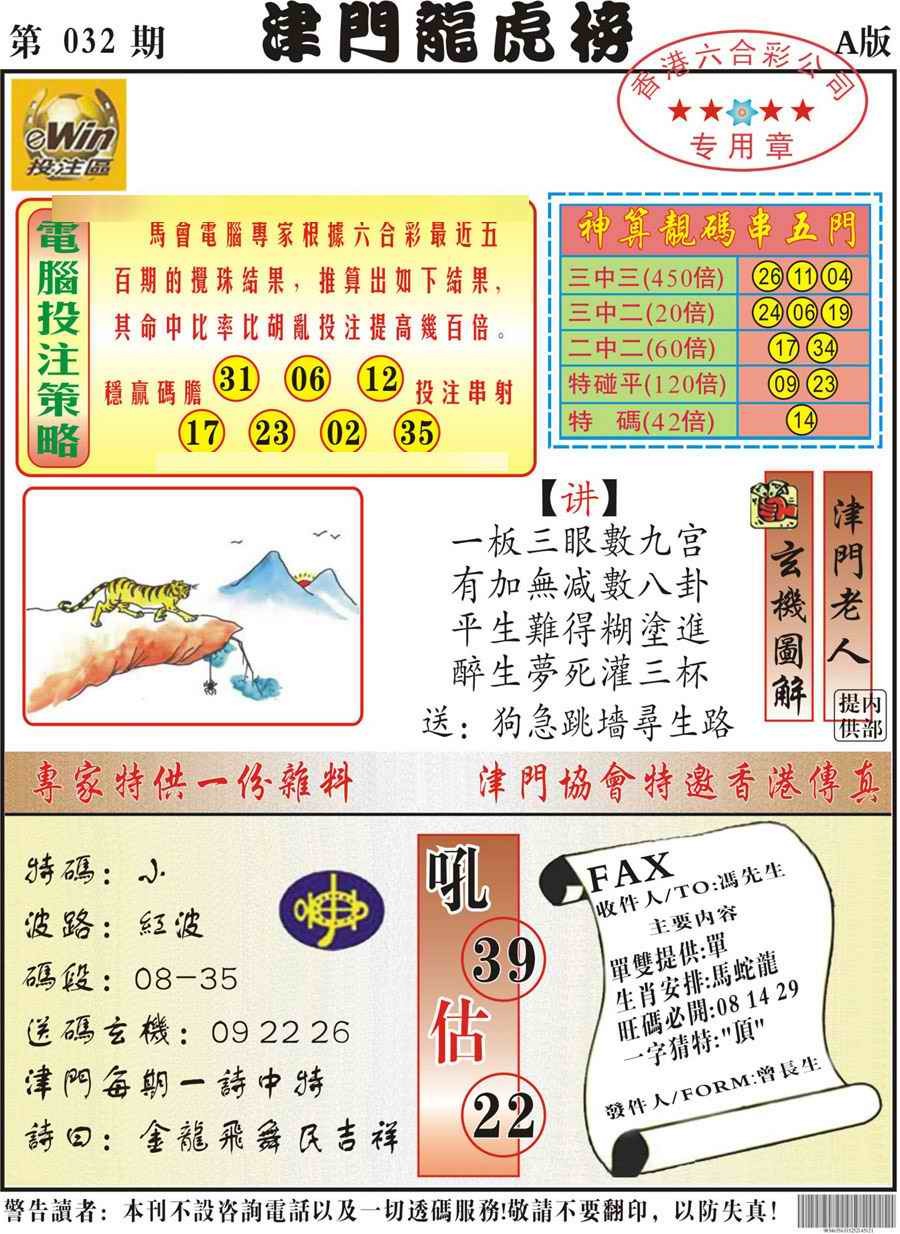 第 032 期
津門龍虎榜
A版
香港六合彩公司
专用章
eWin
投注區
電腦投注策略
馬會電腦專家根據六合彩最近五
百期的攪珠結果，推算出如下結果，
其命中比率比胡亂投注提高幾百倍。
穩贏碼膽 31 06 12 投注串射
17 23 02 35
神算靚碼串五門
三中三(450倍) 26 11 04
三中二(20倍) 24 06 19
二中二(60倍) 17 34
特碰平(120倍) 09 23
特 碼(42倍) 14
【讲】
一板三眼數九宫
有加無減數八卦
平生難得糊塗進
醉生夢死灌三杯
送：狗急跳墻尋生路
玄機圖解
津門老人
内部提供
專家特供一份雜料
津門協會特邀香港傳真
特碼：小
波路：紅波
碼段：08-35
送碼玄機：09 22 26
津門每期一詩中特
詩曰：金龍飛舞民吉祥
吼
39
估
22
FAX
收件人/TO:馮先生
主要内容
單雙提供:單
生肖安排:馬蛇龍
旺碼必開:08 14 29
一字猜特:"頂"
發件人/FORM:曾長生
警告讀者：本刊不設咨詢電話以及一切透碼服務!敬請不要翻印，以防失真！